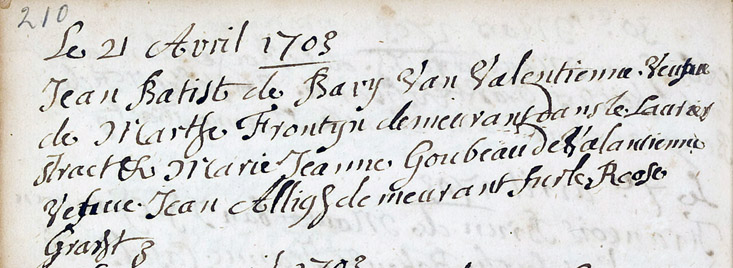 210
Le 21 Avril 1703
Jean Batist de Bary Van Valentienne. Vefue
de Marthe Frontyn demeurant dans le Laurier
stract & Marie Jeanne Goubeau de Valantienne
Vefue Jean Alligs demeurant sur le Roose
Graft
1703